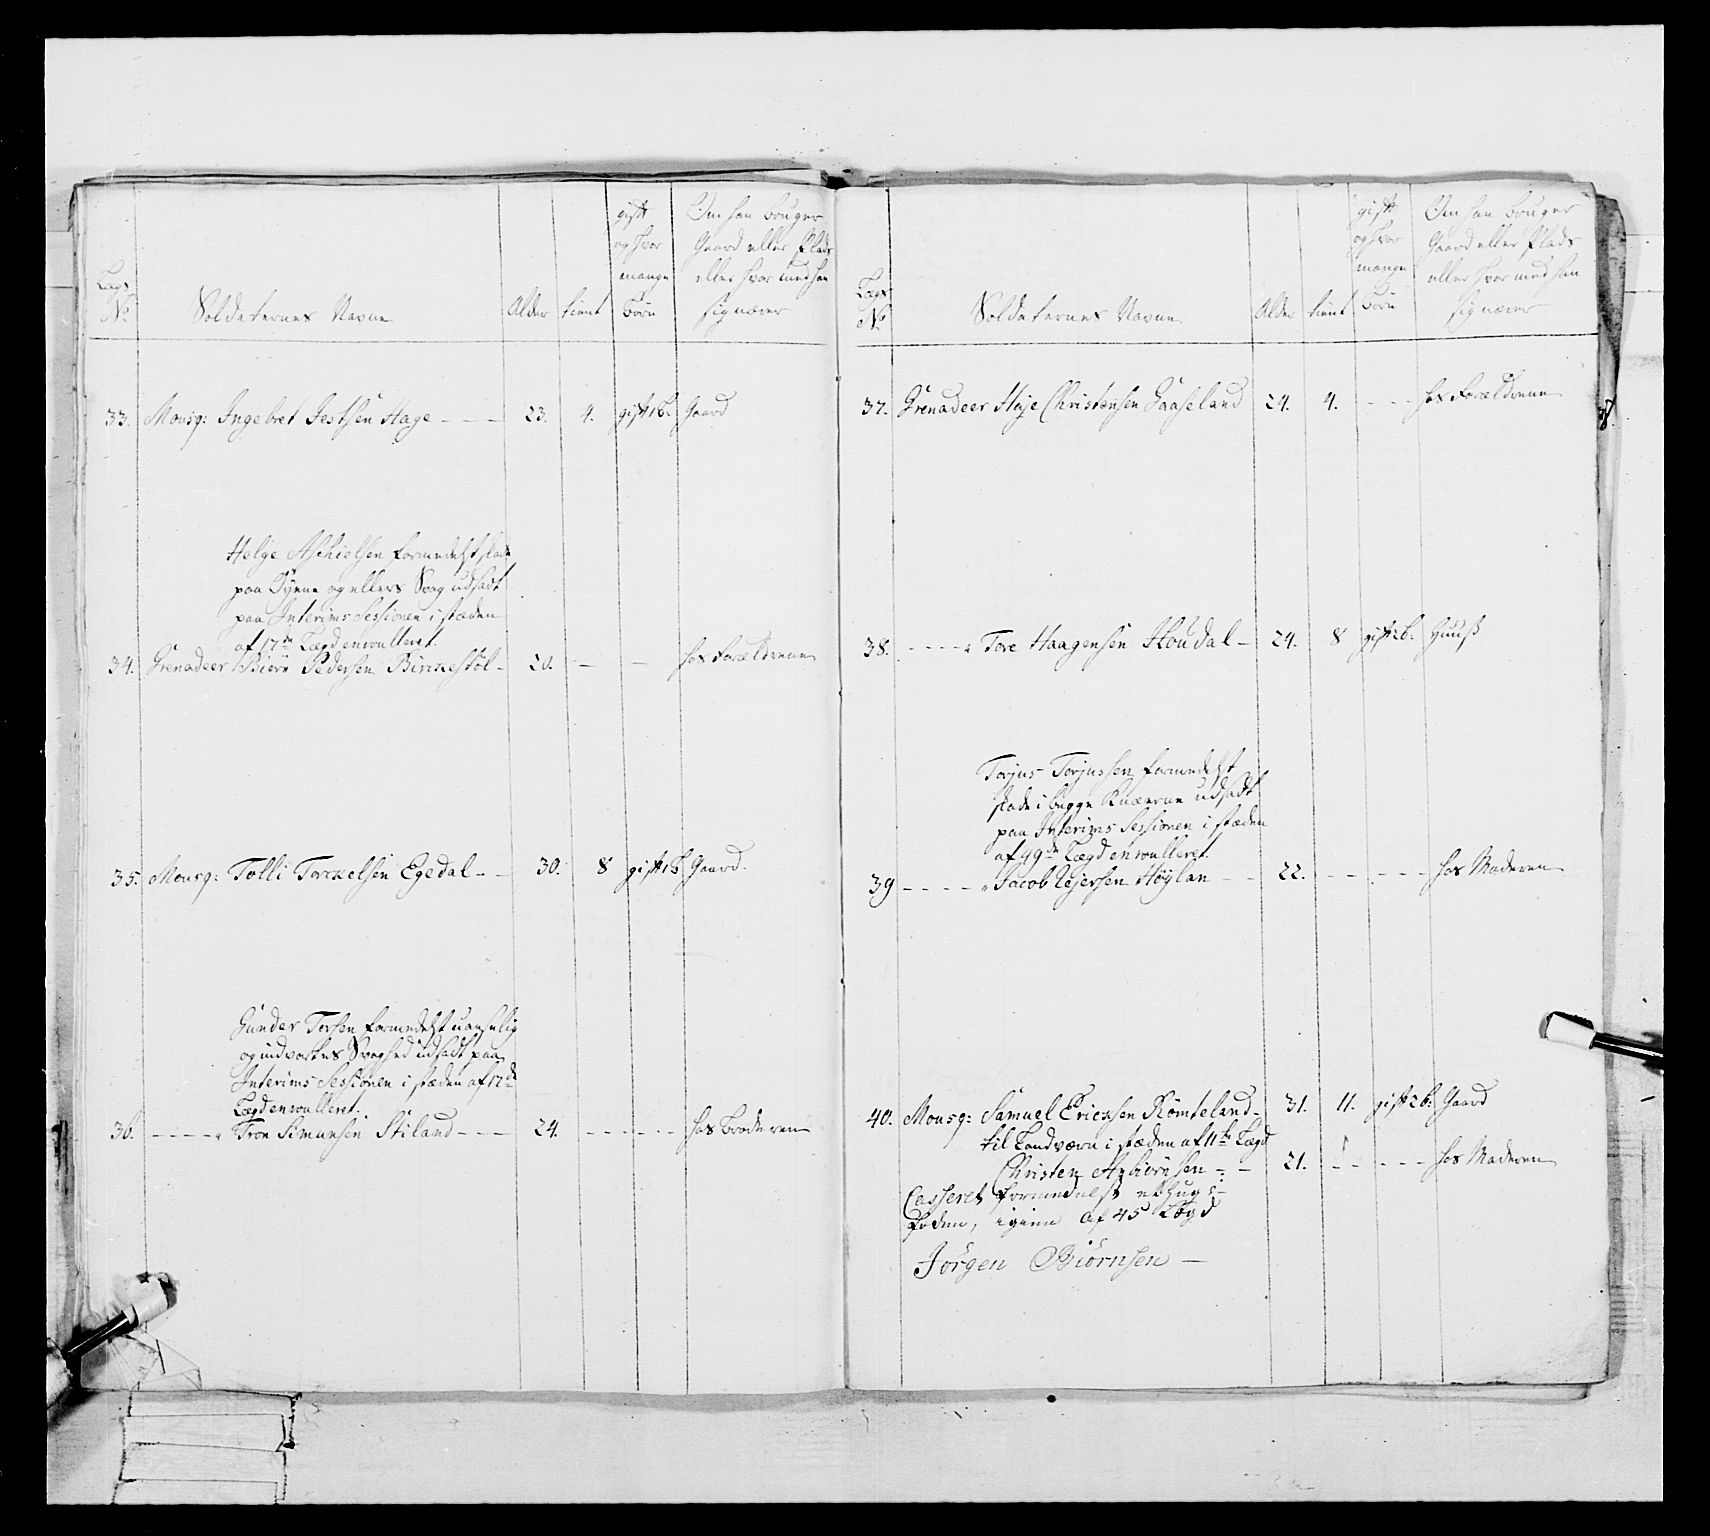 Lægs
No
Soldaternes Navne
Alder
tient
gift
og hvor
mange
Børn
Om han bruger
Gaard eller Plads
eller hvor med han
sig nærer
33. Mousq: Ingebret Jestsen Hage - - - 23. 4. gift 1 B: Gaard
Helge Aschielsen formedelst skade
paa Øyene og ellers Svag udsadt
paa Interims Sessionen i stæden
af 17de Lægd enroulleret.
34. Grenadeer Biørn Pedersen Birkestøl - 20. - - hos Forældrene
35. Mousq: Tolli Torkelsen Egedal - - 30. 8 gift 1 B Gaard.
Gunder Torsen formedelst uanselig
og indvortes Svaghed udsadt paa
Interims Sessionen i stæden af 12de
Lægd enroulleret.
36. - - - - " Tron Simonsen Stiland - - - 24. - - - - - - hos Broderen
Lægs
No
Soldaternes Navne
Alder
tient
gift
og hvor
mange
Børn
Om han bruger
Gaard eller Plads
eller hvor med han
sig nærer
37. Grenadeer Høje Christensen Gaaseland 24. 4. - - - hos Forældrene
38. - - - - " Tore Haagensen Skoudal - 24. 8 gift 2 b: Huuß
Torjus Torjussen formedelst
skade i begge Knæerne udsadt
paa Interims Sessionen i stæden
af 49de Lægd enroulleret.
39 - - - - - " Jacob Rejersen Høylan - - 22. - - - - - - hos Moderen
40. Mousq: Samuel Ericksen Römteland - 31. 11. gift 2 b: Gaard
til Landværn i stæden af 11te Lægd
Christen Asbiørnsen - - 21. - - - - - - hos Moderen
Casseret formedelst et hug i
foden, igien af 45 Lægd
Jørgen Biørnsen -